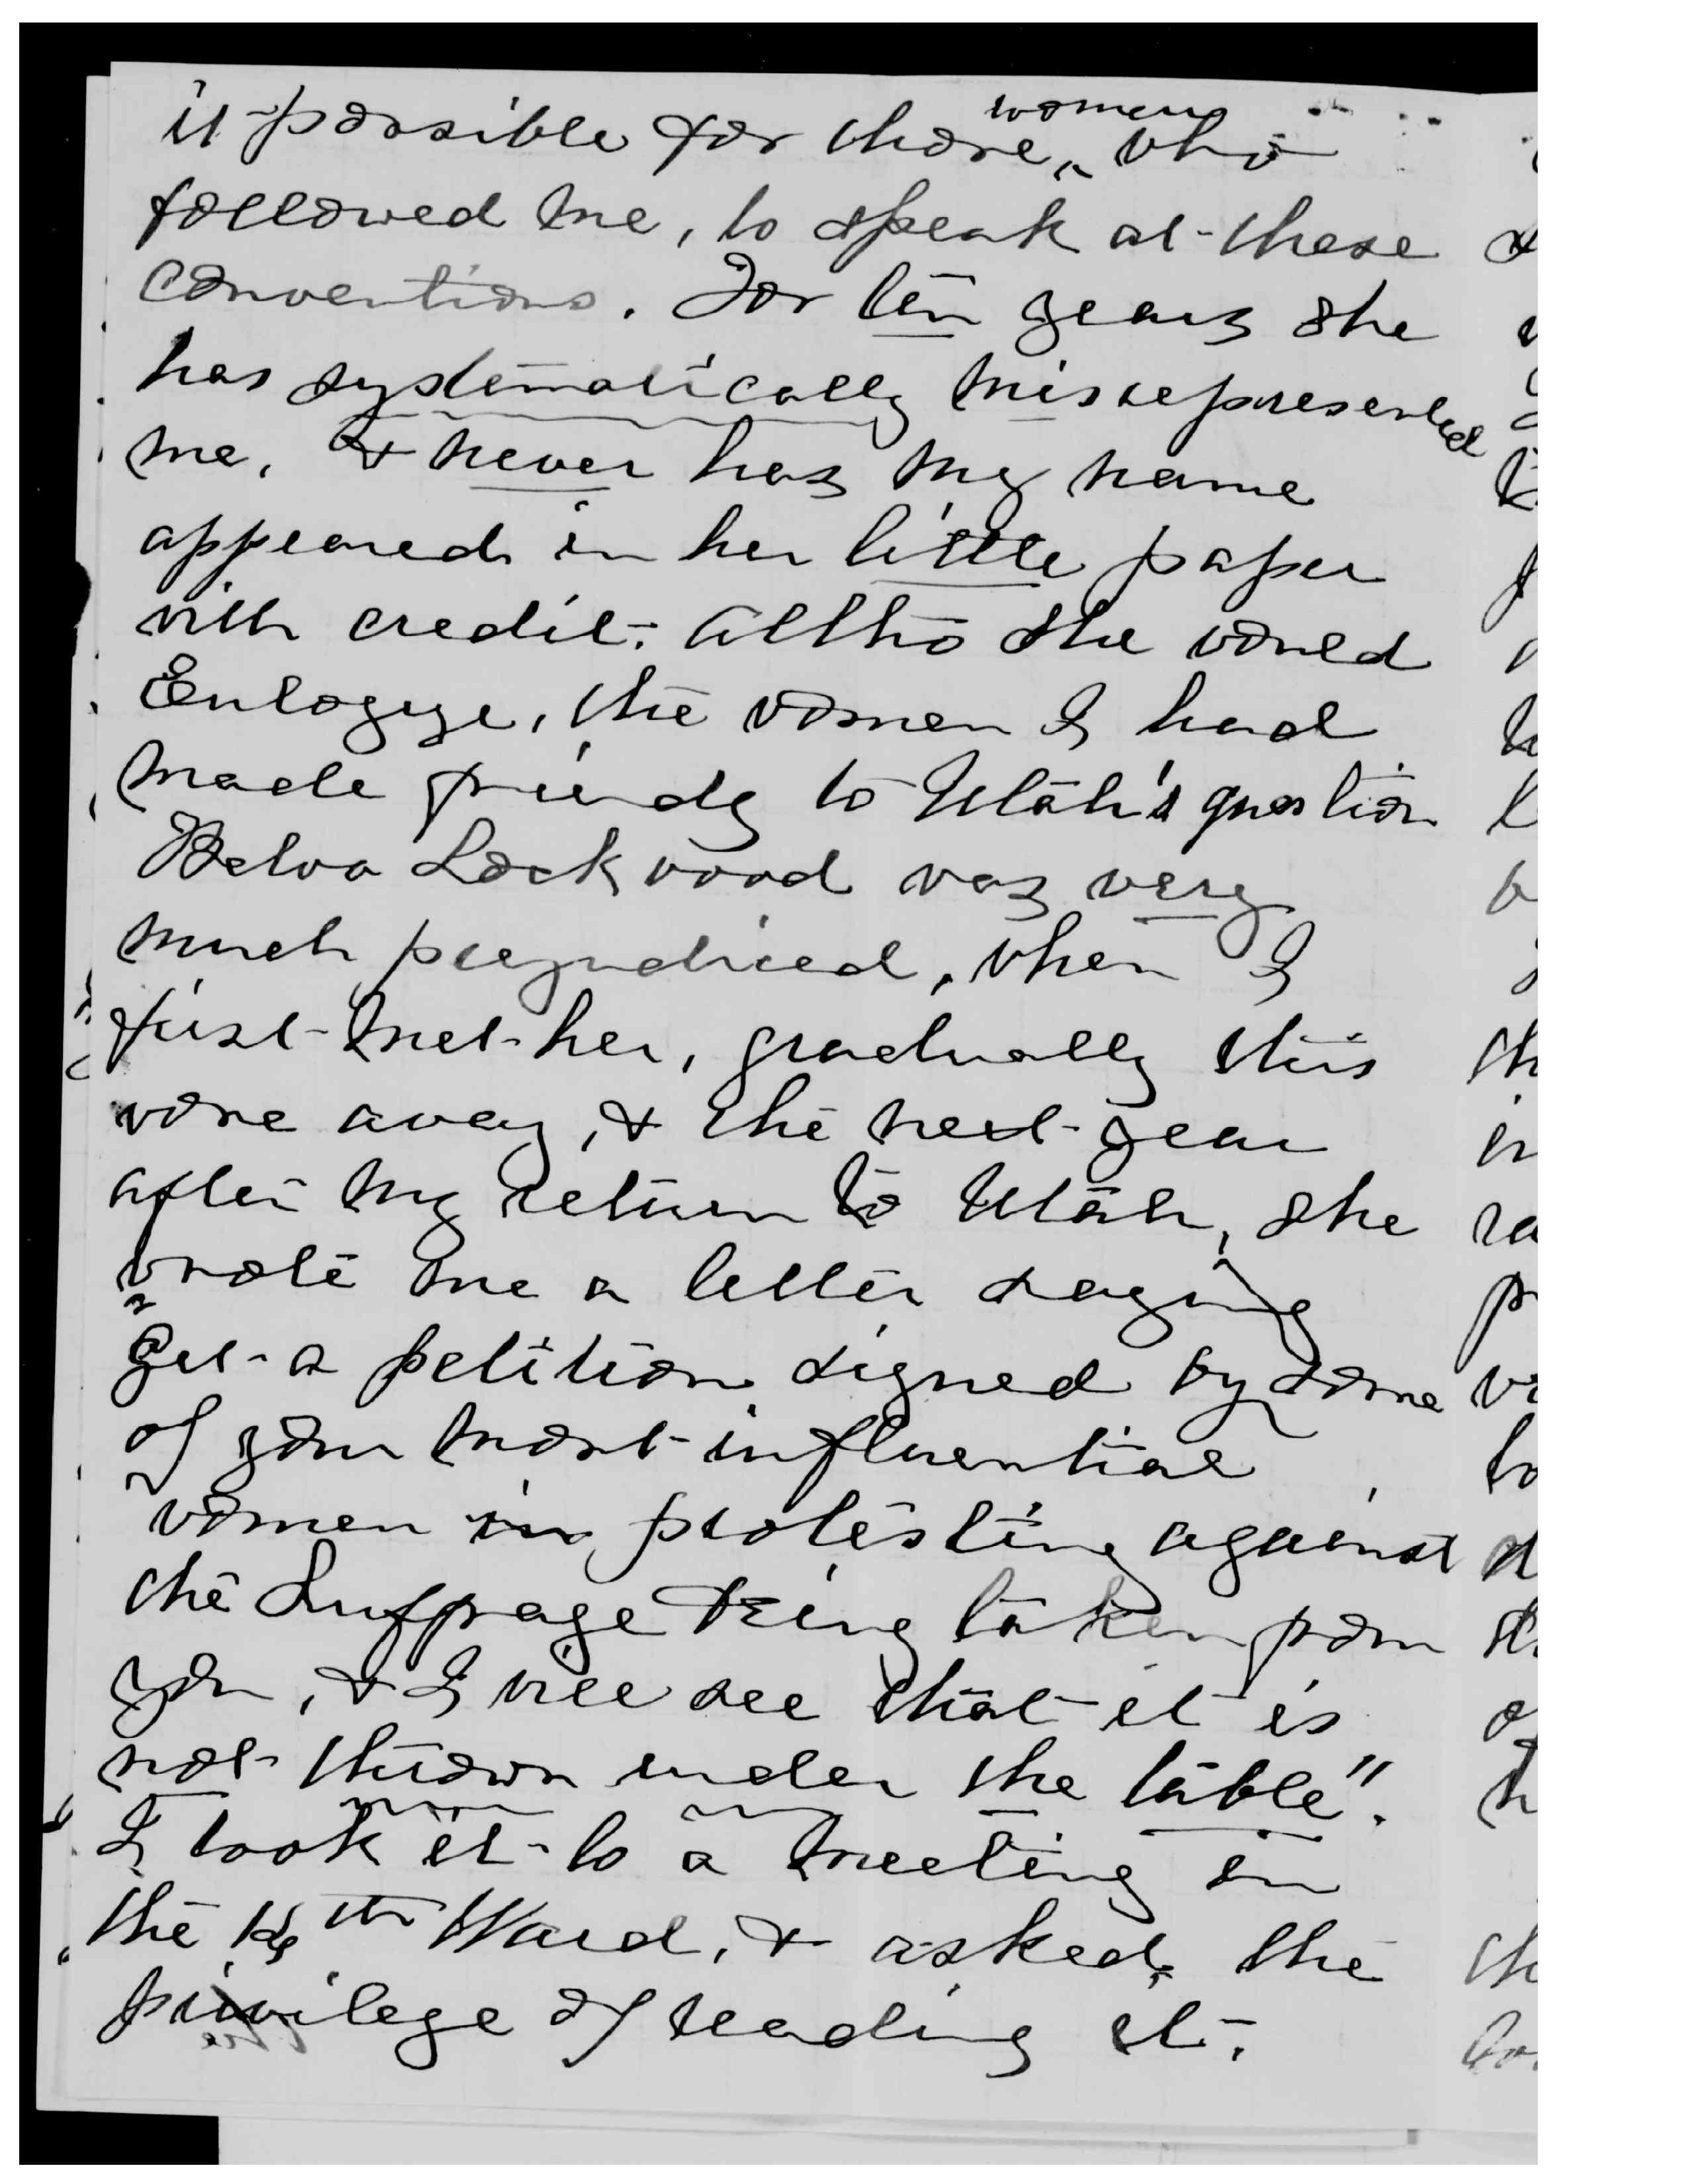 it possible for those women who
followed me, to speak at these
conventions. For ten years she
has systematically misrepresented
me, & never has my name
appeared in her little paper
with credit. Altho she would
Eulogize, the women I had
made friends to Utah's question
Belva Lockwood was very
much prejudiced, when I
first met her, gradually this
wore away, & the next year
after my return to Utah, she
wrote me a letter saying
"Get a petition signed by some
of your most influential
women in protesting against
the Suffrage being taken from
you, & I will see that it is
not thrown under the table".
I took it to a meeting in
the th Ward, & asked the
privilege of reading it.